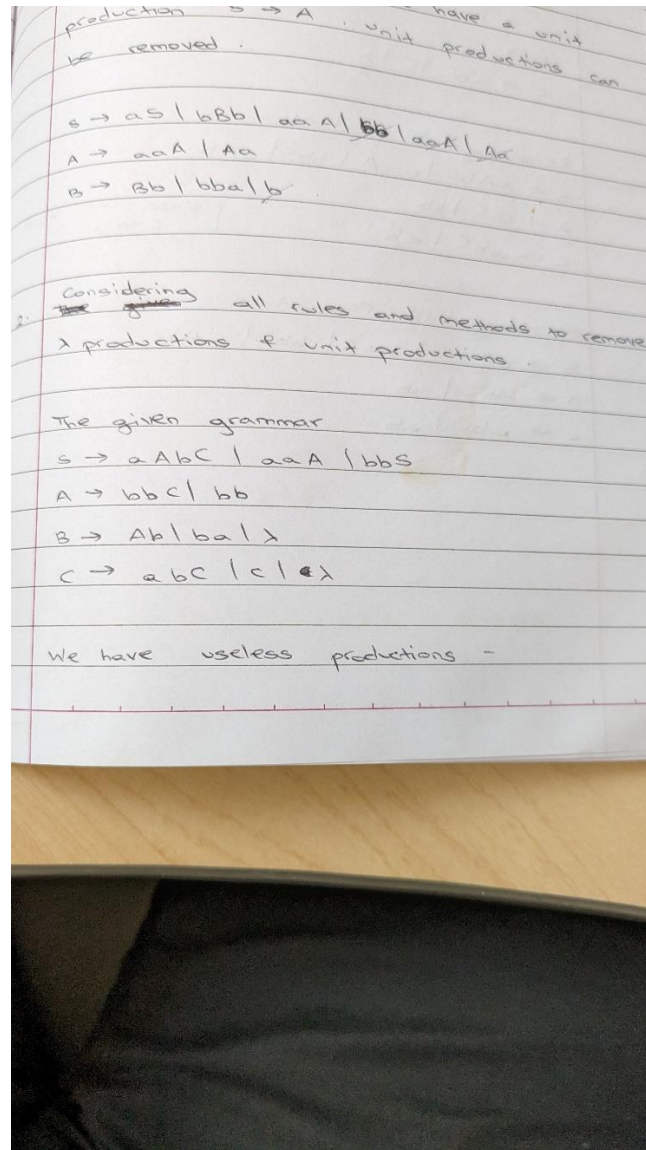 production S → A . unit productions can
have a unit
be removed.
S → aS | bBb | aaA | bb | aaA | Aa
A → aaA | Aa
B → Bb | bba | b
2. Considering all rules and methods to remove
λ productions & unit productions.
The given grammar
S → aAbC | aaA | bbS
A → bbC | bb
B → Ab | ba | λ
C → abC | c | λ
We have useless productions -